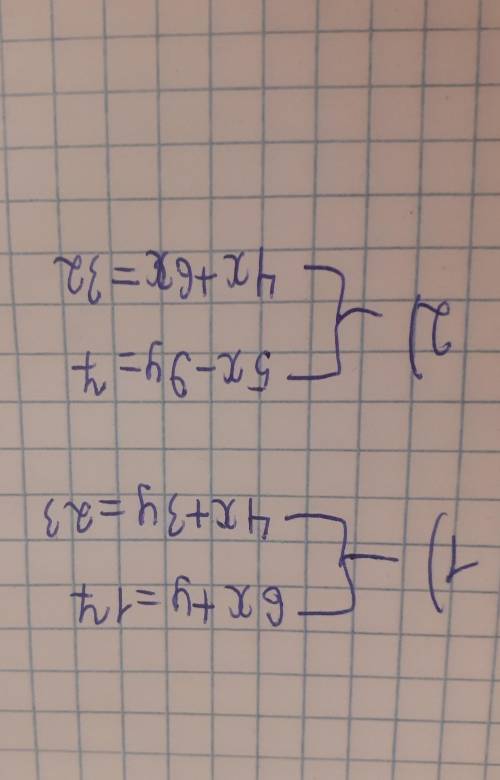 1) { 6x+y=17
4x+3y=23
2) { 5x-9y=7
4x+6x=32